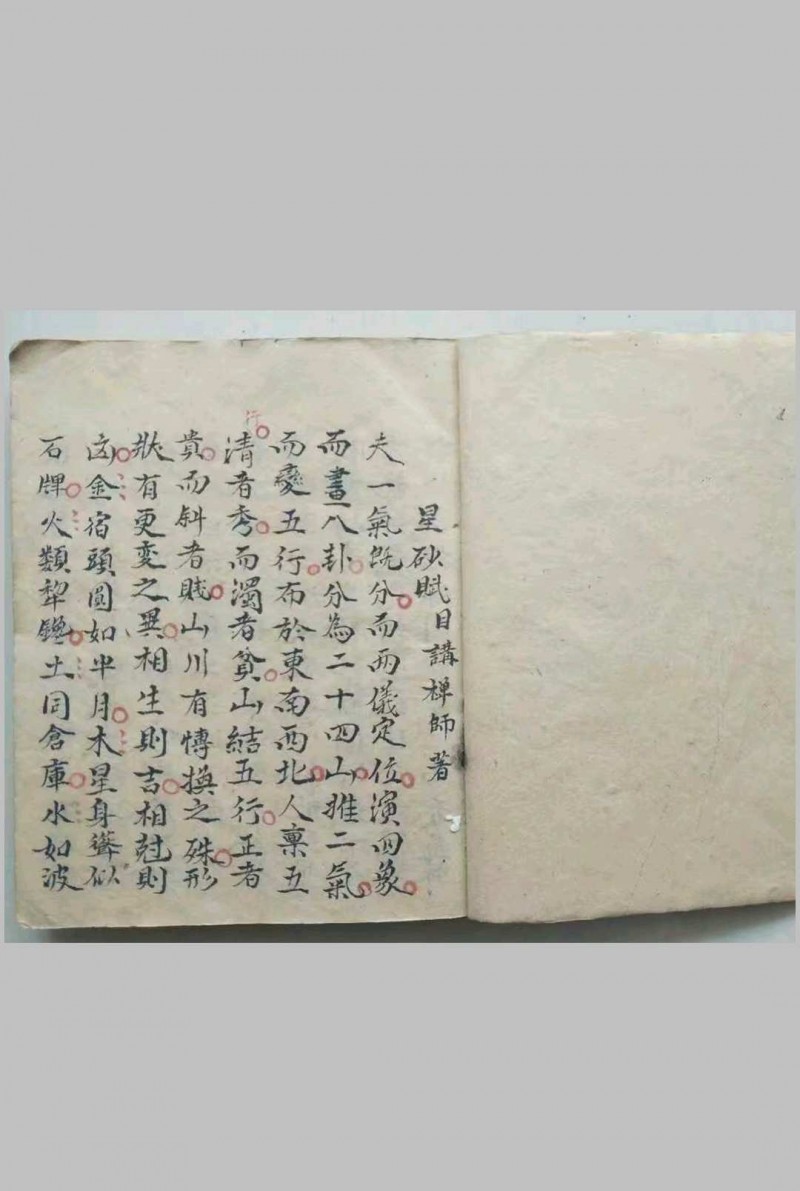 星砂賦目講禅師著
夫一氣既分而两儀定位演四象
而畫八卦分為二十四山推二氣
而變五行布於東南西北人禀五
行
清者秀而濁者貧山結五行正者
貴而斜者賎山川有博換之殊形
狀有更变之異相生則吉相尅則
凶金宿頭圓如半月木星身聳似
石牌火類犂鑱土同倉庫水如波